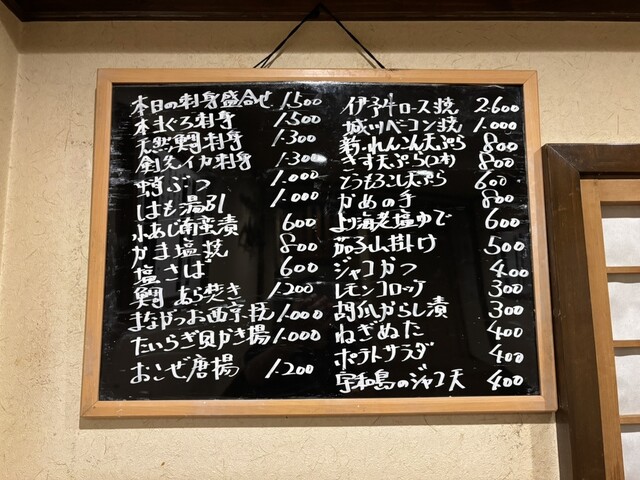 本日の刺身盛合せ 1.500
本まぐろ刺身 1.500
天然鯛刺身 1.300
剣先イカ刺身 1.300
蛸ぶつ 1.000
はも湯引 1.000
小あじ南蛮漬 600
かま塩焼 800
塩さば 600
鯛あら焚き 1.200
まながつお西京焼 1.000
たいらぎ貝かき揚 1.000
おこぜ唐揚 1.200
伊予牛ロース焼 2.600
城川ベーコン焼 1.000
新れんこん天ぷら 800
きす天ぷら 800
とうもろこし天ぷら 600
かめの手 800
より海老塩ゆで 600
茄子山掛け 500
ジャコかつ 400
レモンコロッケ 300
胡瓜からし漬 300
ねぎぬた 400
ポテトサラダ 400
宇和島のジャコ天 400